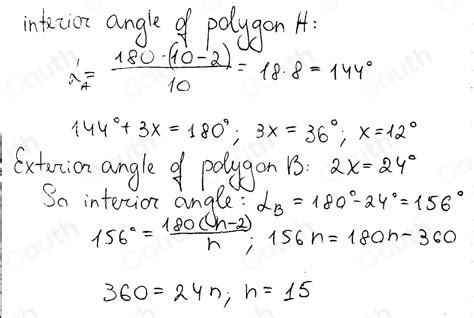 interior angle of polygon A:
α_A = 180·(10-2)/10 = 18·8 = 144°
144° + 3x = 180°; 3x = 36°; x = 12°
Exterior angle of polygon B: 2x = 24°
So interior angle: α_B = 180° - 24° = 156°
156° = 180(n-2)/n; 156n = 180n - 360
360 = 24n; n = 15